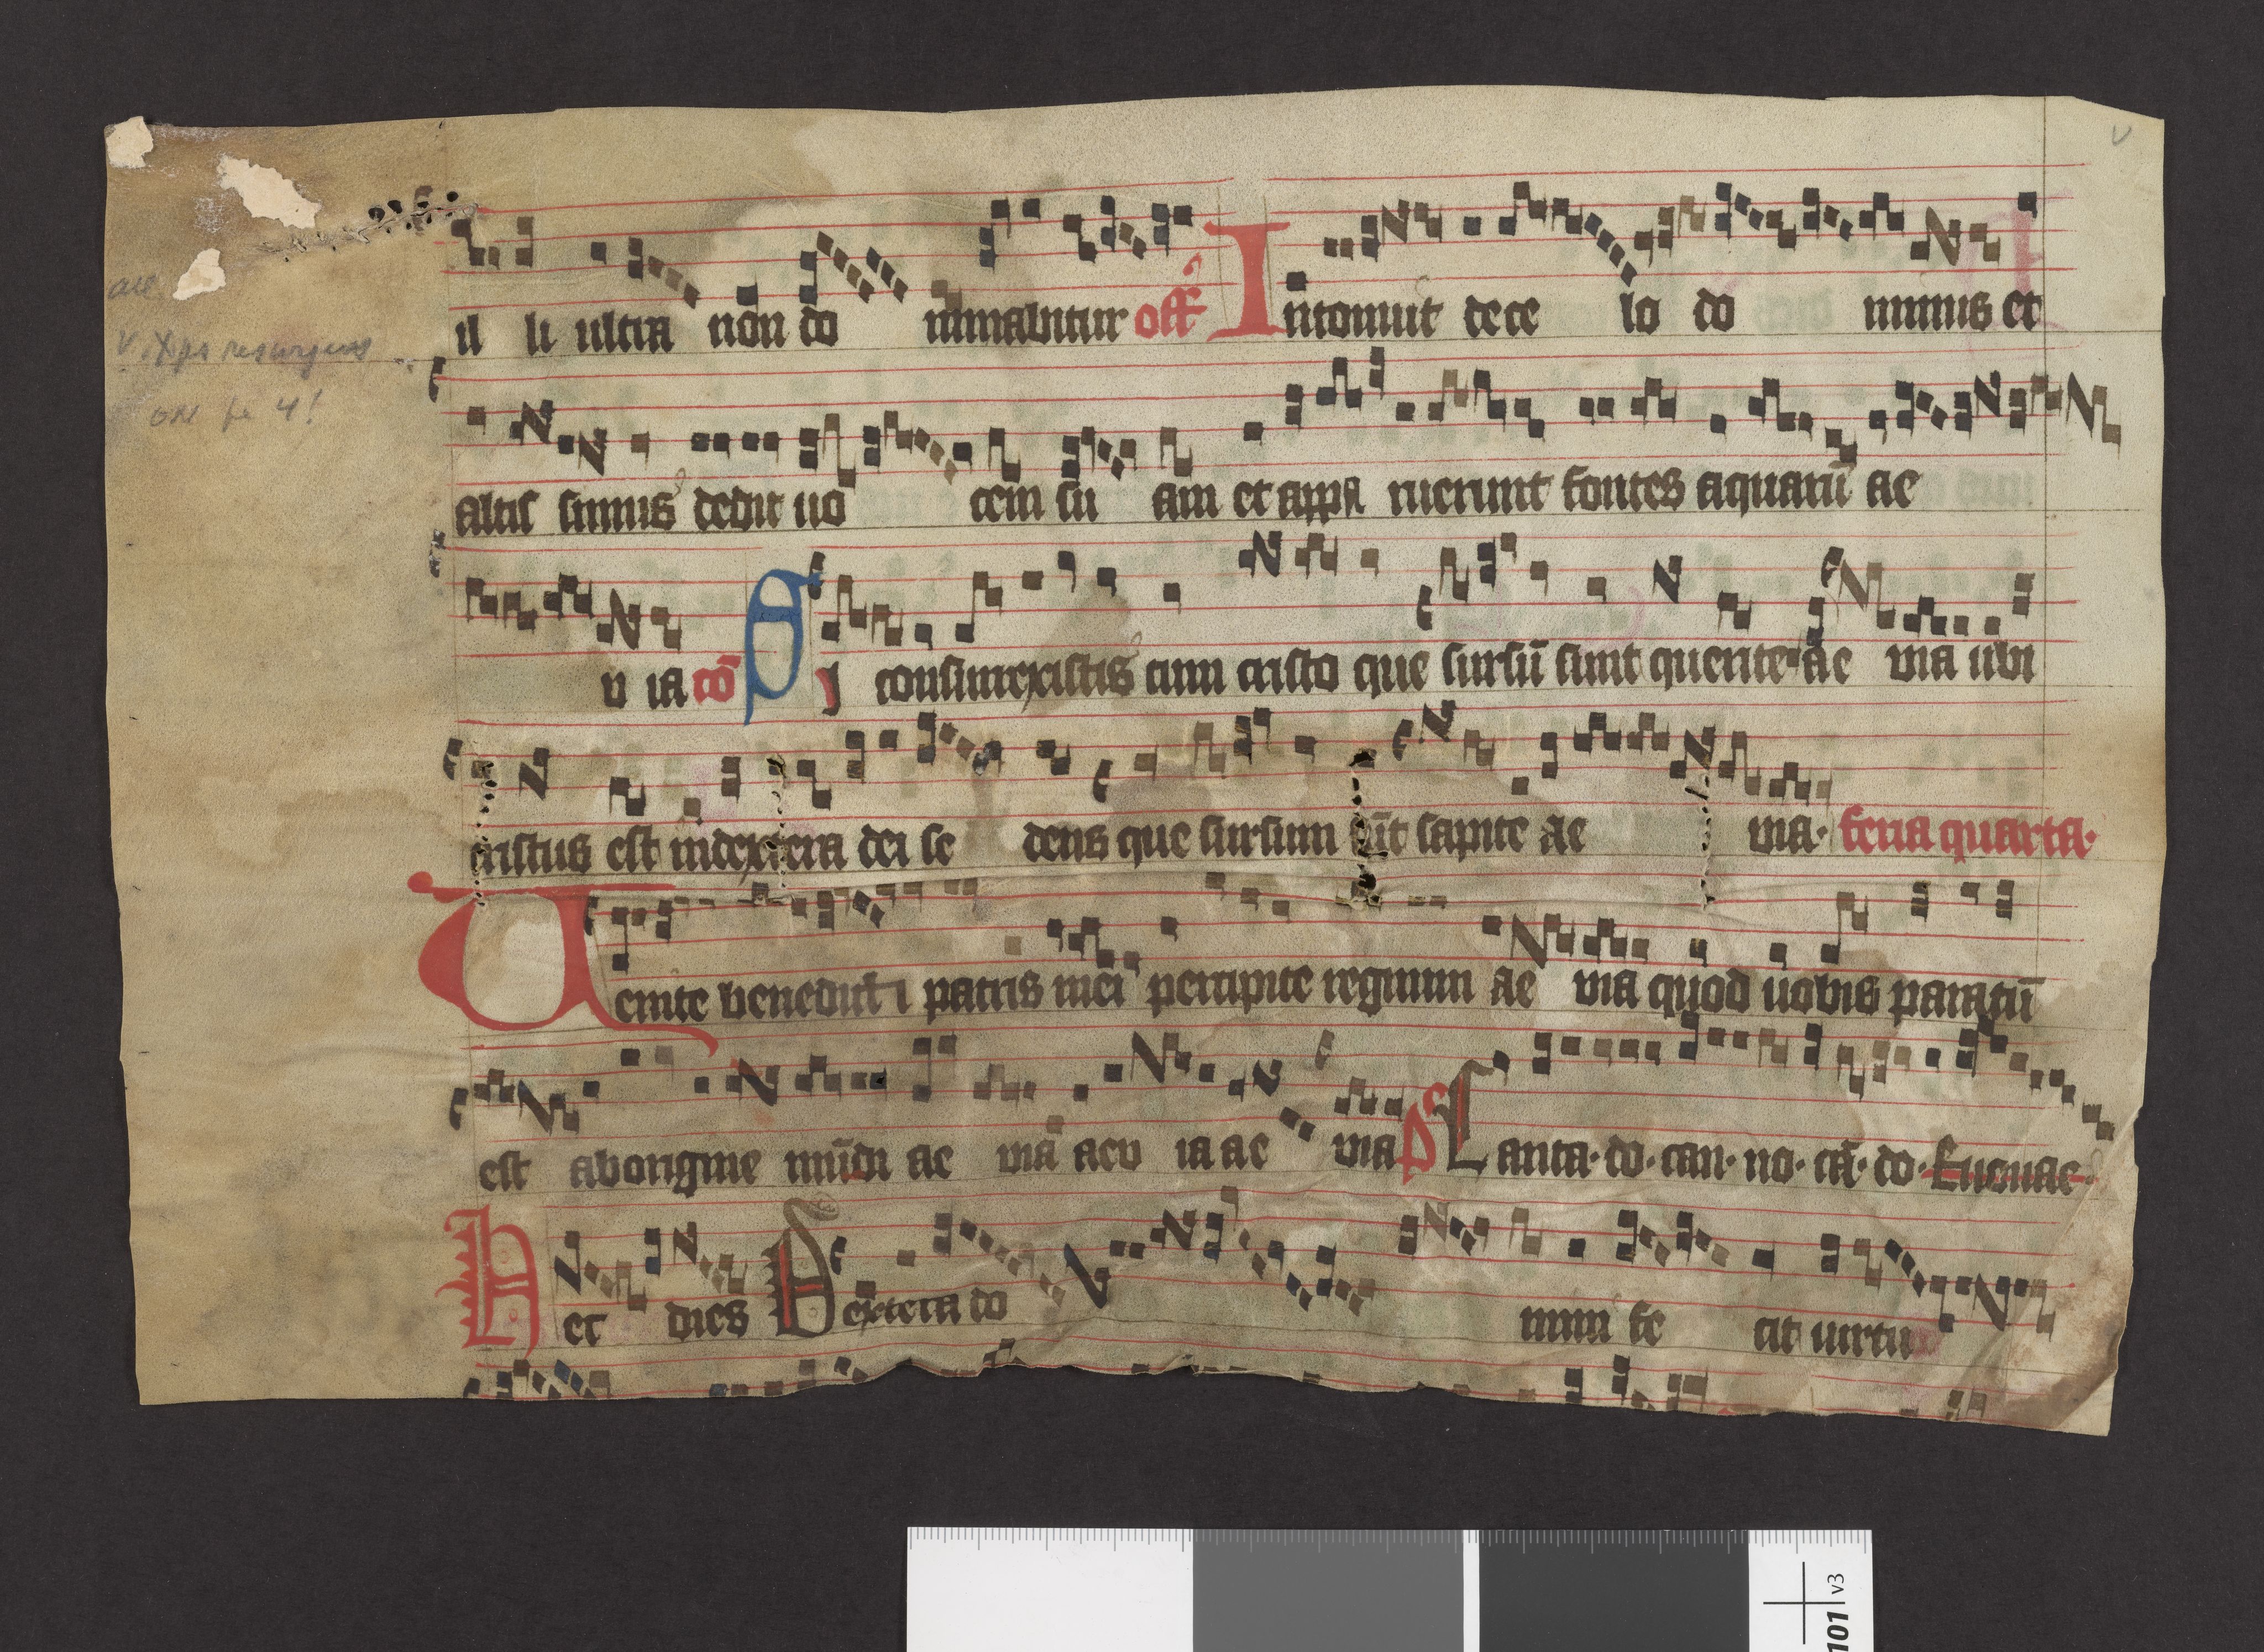 il li ultra non do minabitur off̄ Intonuit de ce lo do minus et
altis simus dedit uo cem su am et appa ruerunt fontes aquarū ae
u ia cō SI consurrexistis cum cristo que sursū sunt querite ae uia ubi
cristus est in dextera dei se dens que sursum sūt sapite ae uia· feria quarta·
Uenite benedicti patris mei percipite regnum ae uia quod uobis paratū
est ab origine mūdi ae uia aeu ia ae uia ps Canta· do· can· no· cā· do· Euouae
Hec dies Dextera do mini fe cit uirtu
all
V. Xps resurgens
on fe 4!
V
101 v3